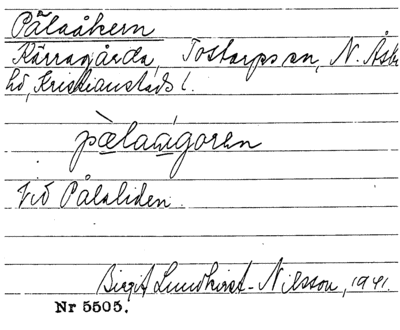 Pålaåkern
Kärragårda, Tostarps sn, N. Åsbo
hd, Kristianstads l.
pælaágoren
Vid Pålaliden.
Birgit Lundkvist-Nilsson, 1941.
Nr 5505.